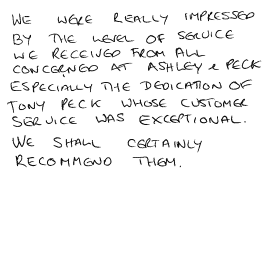 WE WERE REALLY IMPRESSED
BY THE LEVEL OF SERVICE
WE RECEIVED FROM ALL
CONCERNED AT ASHLEY & PECK
ESPECIALLY THE DEDICATION OF
TONY PECK WHOSE CUSTOMER
SERVICE WAS EXCEPTIONAL.
WE SHALL CERTAINLY
RECOMMEND THEM.